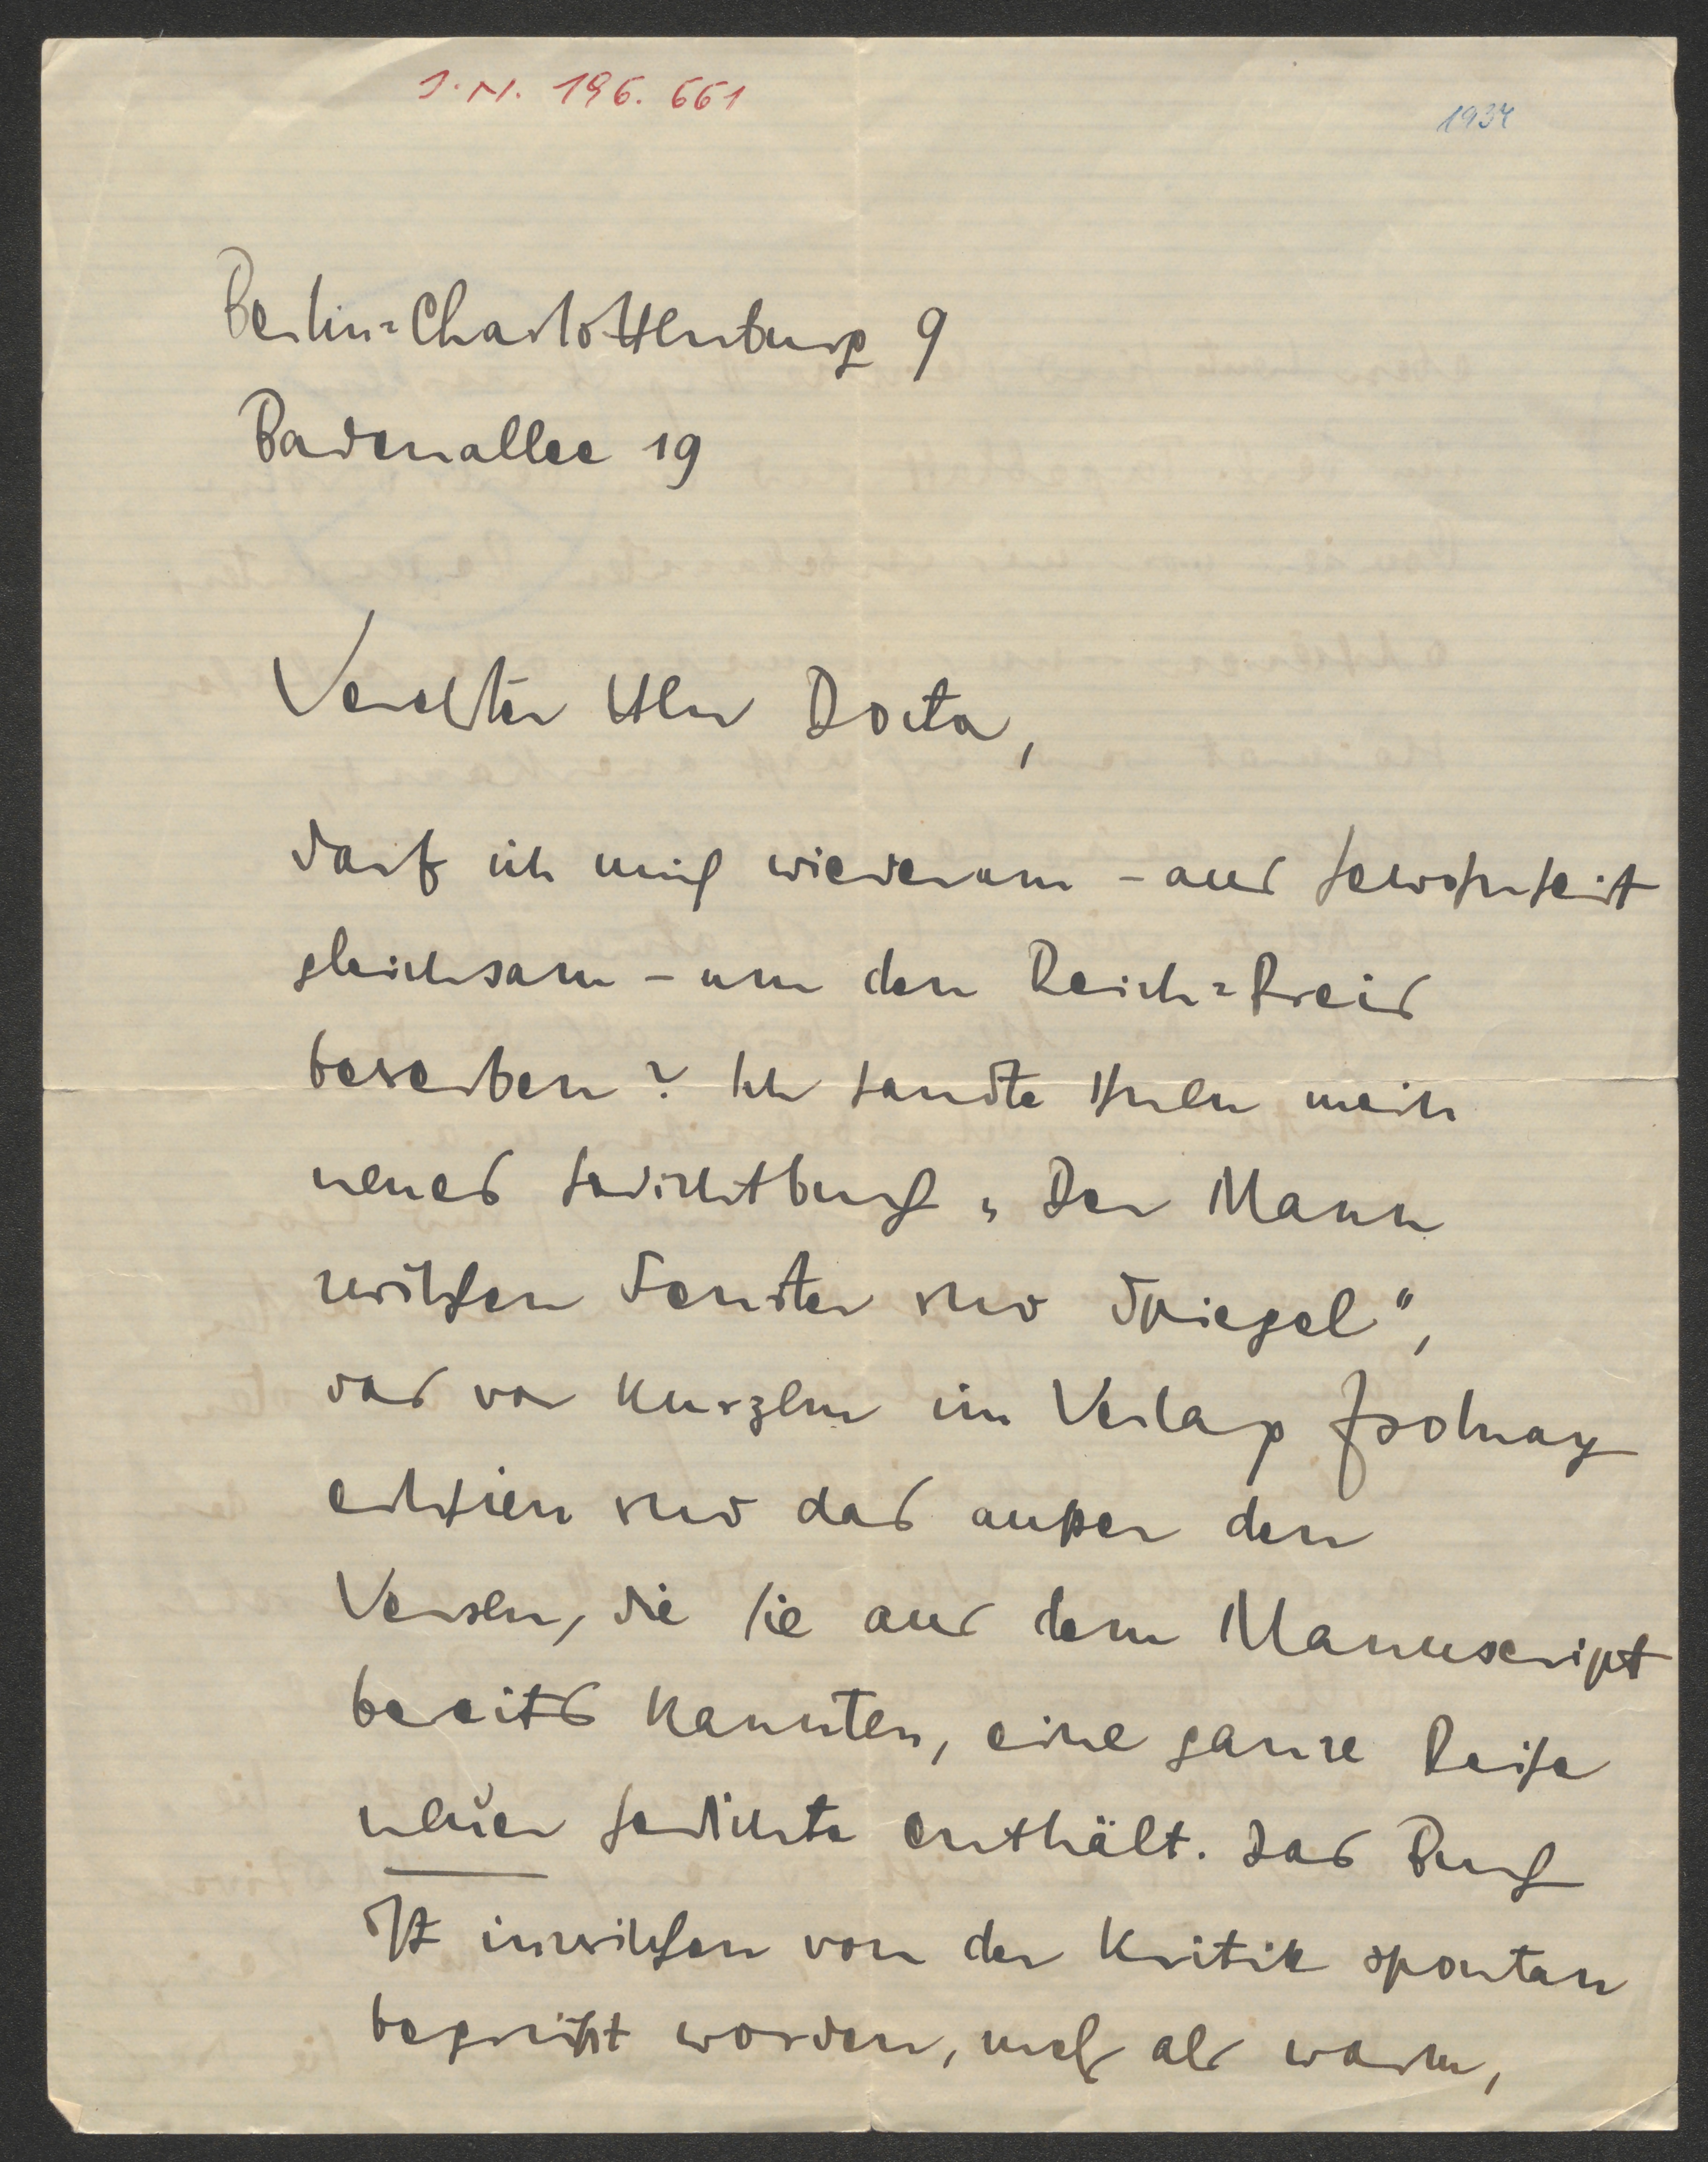 J.N. 196.661
1934
Berlin-Charlottenburg 9
Badenallee 19
Verehrter Herr Doctor,
darf ich mich wiederum – aus Gewohnheit
gleichsam – um den Reich-Preis
bewerben? Ich sandte Ihnen mein
neues Gedichtbuch „Der Mann
zwischen Fenster und Spiegel“,
das vor kurzem im Verlag Zsolnay
erschien und das außer den
Versen, die Sie aus dem Manuscript
bereits kannten, eine ganze Reihe
neuer Gedichte enthält. Das Buch
ist inzwischen von der Kritik spontan
begrüßt worden, mehr als warm,